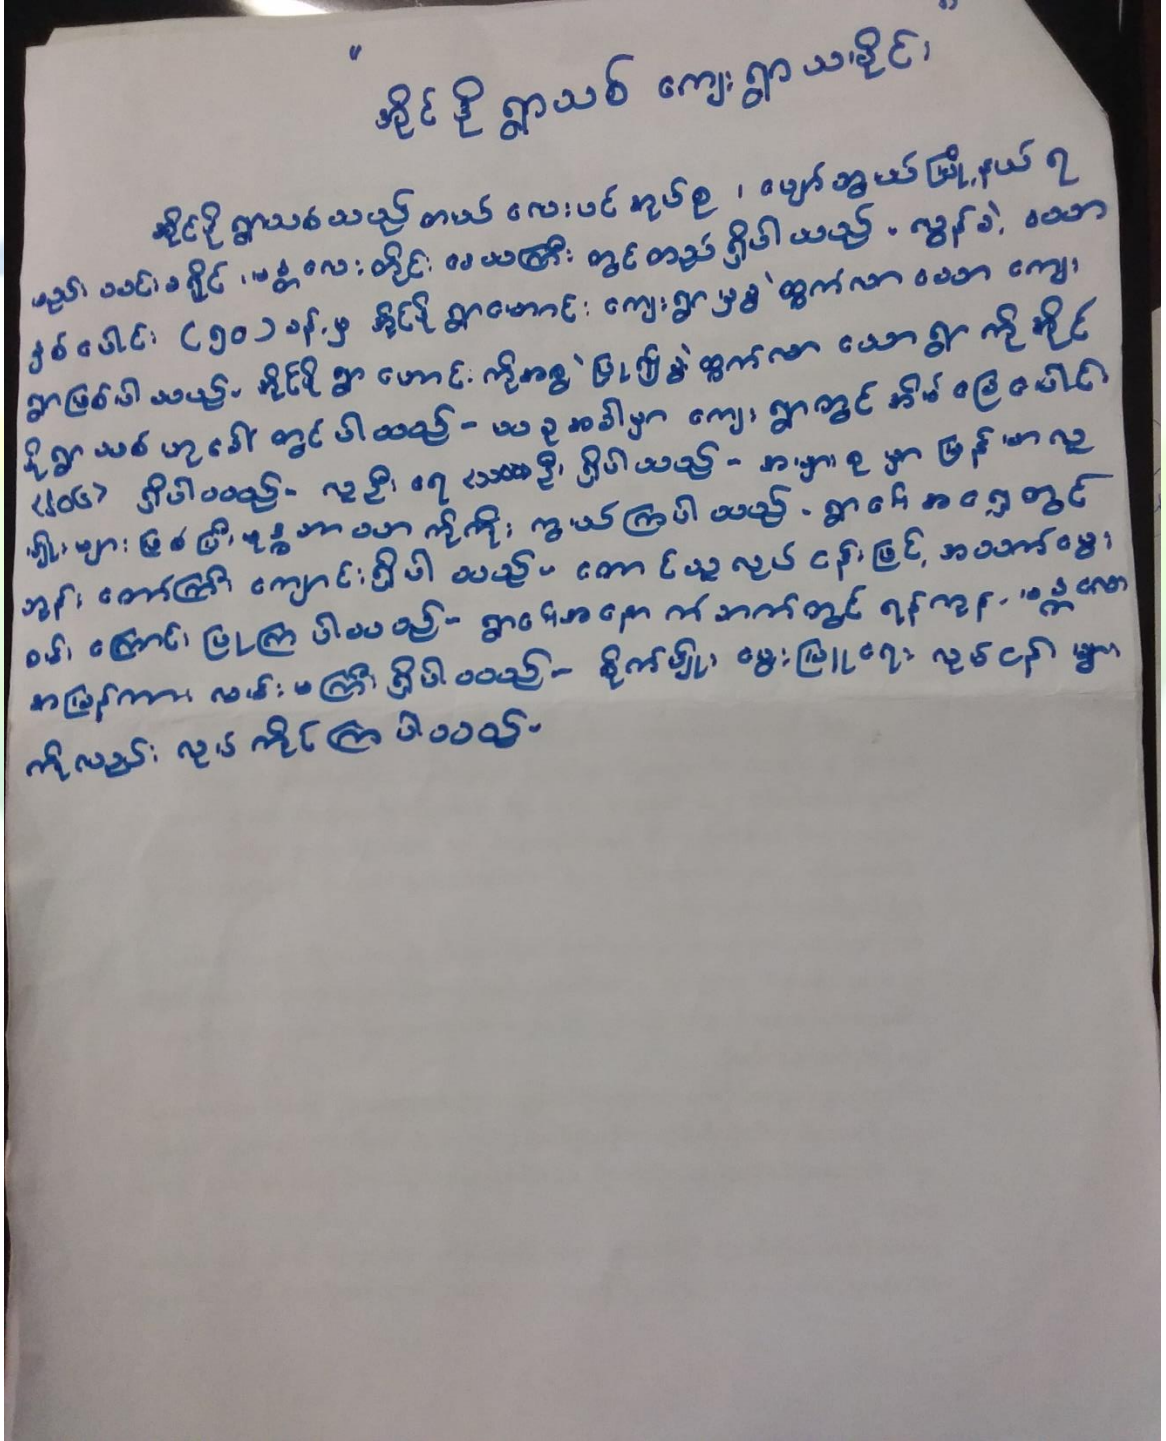 "အိုင်ဒိုရွာသစ် ကျေးရွာသမိုင်း"
အိုင်ဒိုရွာသစ်သည် တယ် လေးပင် အုပ်စု ၊ ပျော်ဘွယ်မြို့နယ် ရ
မည်း သင်းခရိုင် ၊ မန္တလေးတိုင်း ဒေသကြီး တွင်တည် ရှိပါသည်။ လွန်ခဲ့ သော
နှစ်ပေါင်း (၅၀) ခန့်မှ အိုင်ဒိုရွာဟောင်း ကျေးရွာမှခွဲထွက်လာ သော ကျေး
ရွာဖြစ်ပါသည်။ အိုင်ဒိုရွာ ဟောင်း ကိုအစွဲပြု၍ခွဲထွက်လာ သောရွာ ကိုအိုင်
ဒိုရွာသစ်ဟုခေါ်တွင်ပါသည်- ယခုအခါမှာ ကျေးရွာတွင် အိမ်ခြေပေါင်း
ရှိပါသည်- လူဦးရေ ဦး ရှိပါသည်- အများစုမှာ မြန်မာလူ
မျိုးများဖြစ်ပြီး ဗုဒ္ဓဘာသာ ကိုကိုးကွယ်ကြပါသည်။ ရွာ၏အရှေ့တွင်
ဘုန်းတော်ကြီး ကျောင်းရှိပါသည်။ တောင်သူလုပ်ငန်းဖြင့် အသက်မွေး
ဝမ်းကြောင်းပြုကြပါသည်- ရွာ၏အနောက်ဘက်တွင် ရန်ကုန်-မန္တလေး
အမြန်ကားလမ်းမကြီးရှိပါသည်- စိုက်ပျိုးမွေးမြူရေးလုပ်ငန်းများ
ကိုလည်း လုပ်ကိုင်ကြပါသည်။